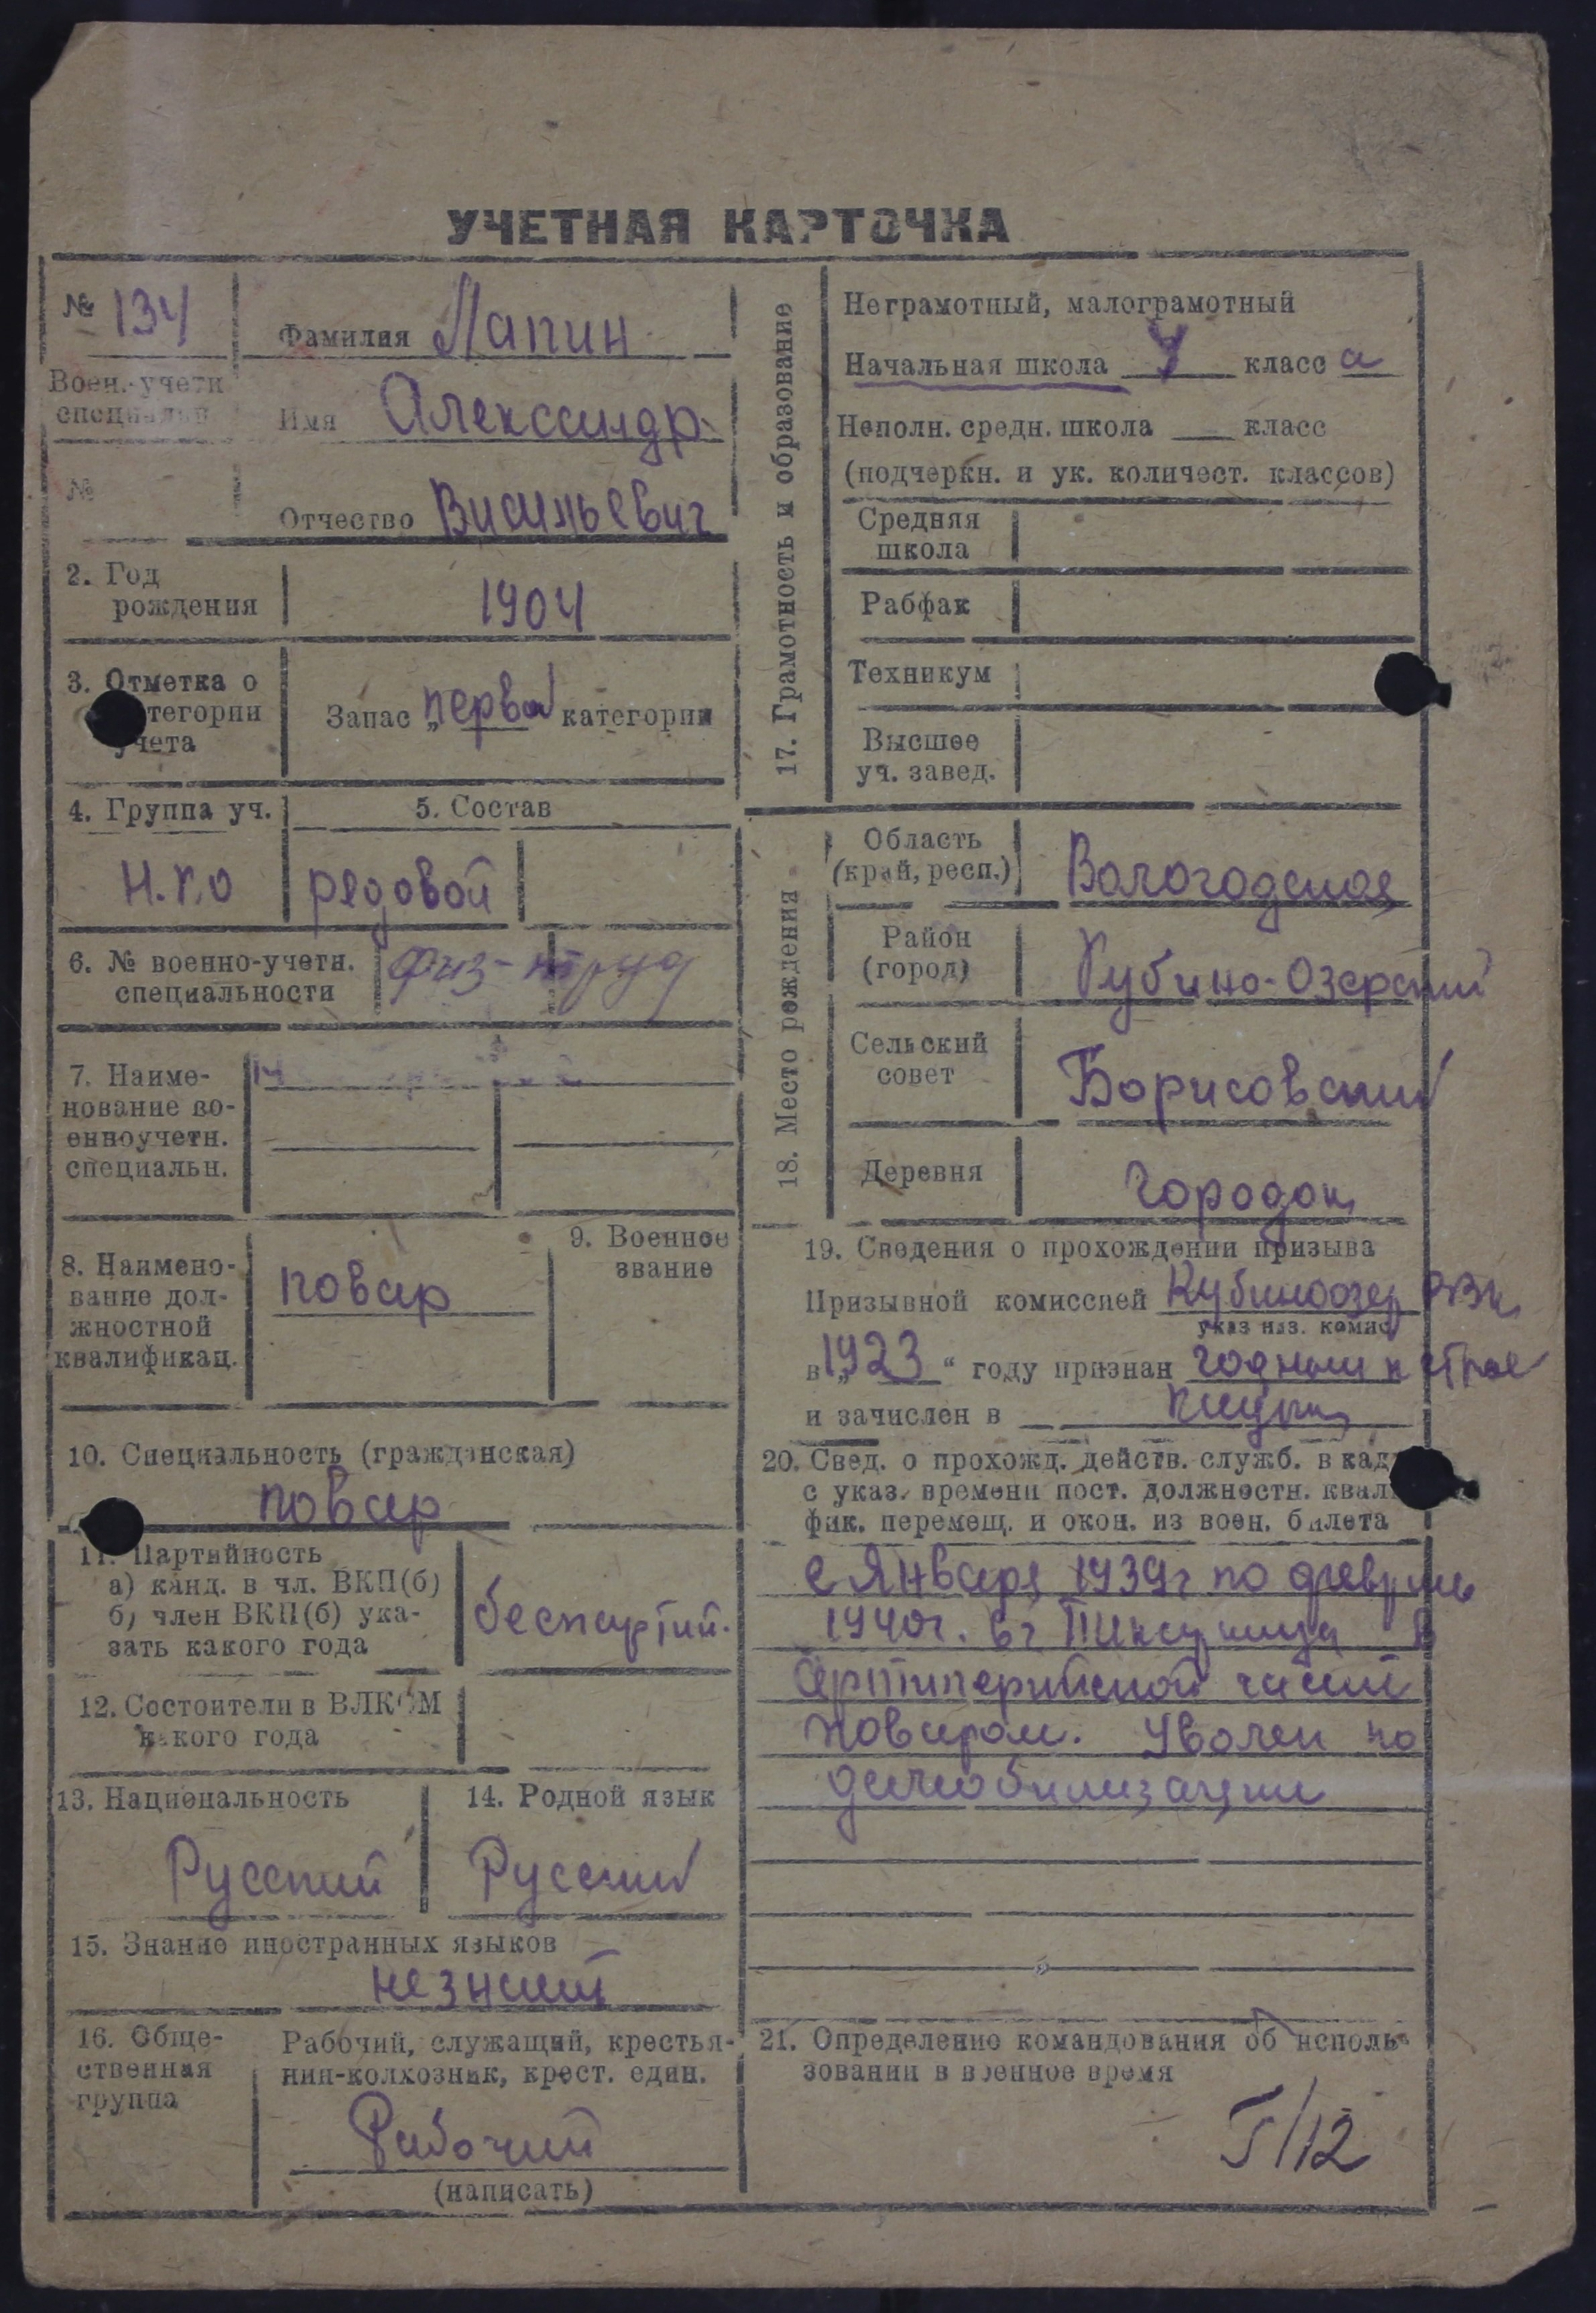 УЧЕТНАЯ КАРТОЧКА
№ 134
Фамилия Лапин
Воен.-учетн
специальн
Имя Александр
№
Отчество Васильевич
2. Год
рождения
1904
3. Отметка о
категории
учета
Запас „первой категории
4. Группа уч.
5. Состав
Н.К.О
редовой
6. № военно-учетн.
специальности
физ-труд
7. Наиме-
нование во-
енноучетн.
специальн.
8. Наимено-
вание дол-
жностной
квалификац.
повар
9. Военное
звание
10. Специальность (гражданская)
повар
11. Партийность
а) канд. в чл. ВКП(б)
б) член ВКП(б) ука-
зать какого года
беспартий.
12. Состоит ли в ВЛКСМ
какого года
13. Национальность
Русский
14. Родной язык
Русский
15. Знание иностранных языков
незнает
16. Обще-
ственная
группа
Рабочий, служащий, крестья-
нин-колхозник, крест. един.
Рабочий
(написать)
17. Грамотность и образование
Неграмотный, малограмотный
Начальная школа класс а
Неполн. средн. школа класс
(подчеркн. и ук. количест. классов)
Средняя
школа
Рабфак
Техникум
Высшее
уч. завед.
18. Место рождения
Область
(край, респ.)
Вологодская
Район
(город)
Кубино-Озерский
Сельский
совет
Борисовский
Деревня
Городок
19. Сведения о прохождении призыва
Призывной комиссией Кубиноозер РВК
указ наз. комис
в „1923“ году признан годным к строе
и зачислен в кадры
20. Свед. о прохожд. действ. служб. в кад
с указ. времени пост. должностн. квали
фик. перемещ. и окон. из воен. билета
с Января 1939г по февраль
1940г. в г в
Артилерийской части
поваром. Уволен по
демобилизации
21. Определение командования об исполь-
зовании в военное время
Г/12